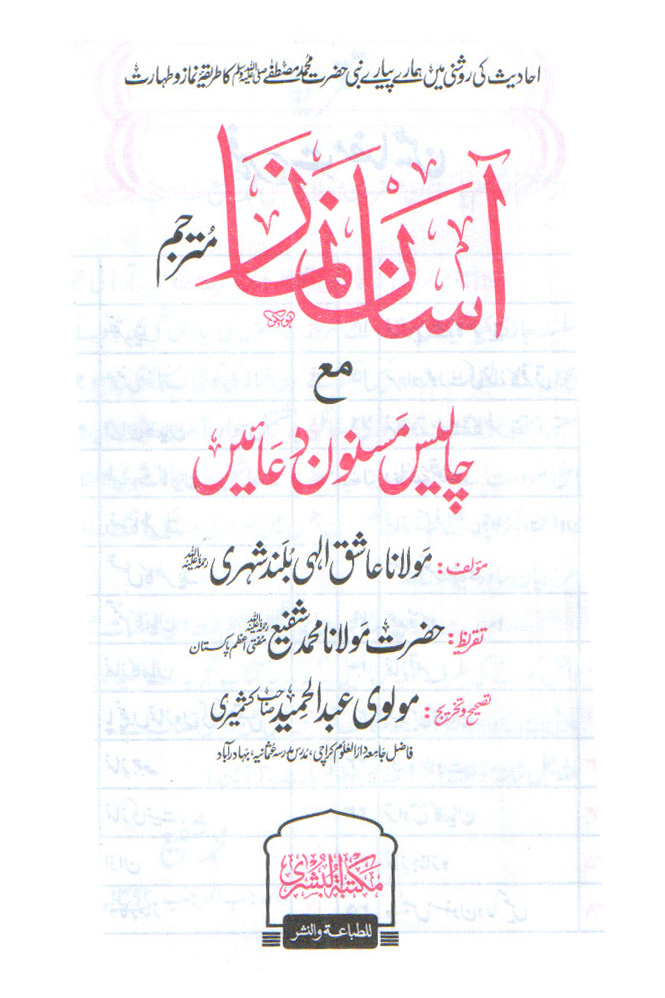 احادیث کی روشنی میں ہمارے پیارے نبی حضرت محمد مصطفےٰ صلی اللہ علیہ وسلم کا طریقۂ نماز و طہارت
آسان نماز
مُترجم
مع
چالیس مَسنون دُعائیں
مؤلف: مَولانا عاشق الٰہی بُلند شہری رحمۃ اللہ علیہ
تقریظ: حضرت مَولانا محمد شفیع رحمۃ اللہ علیہ مفتی اعظم پاکستان
تصحیح و تخریج: مولوی عبد الحمید صاحب کشمیری
فاضل جامعہ دارالعلوم کراچی، مدرس مدرسہ عثمانیہ، بہادر آباد
مکتبة البشری
للطباعة والنشر